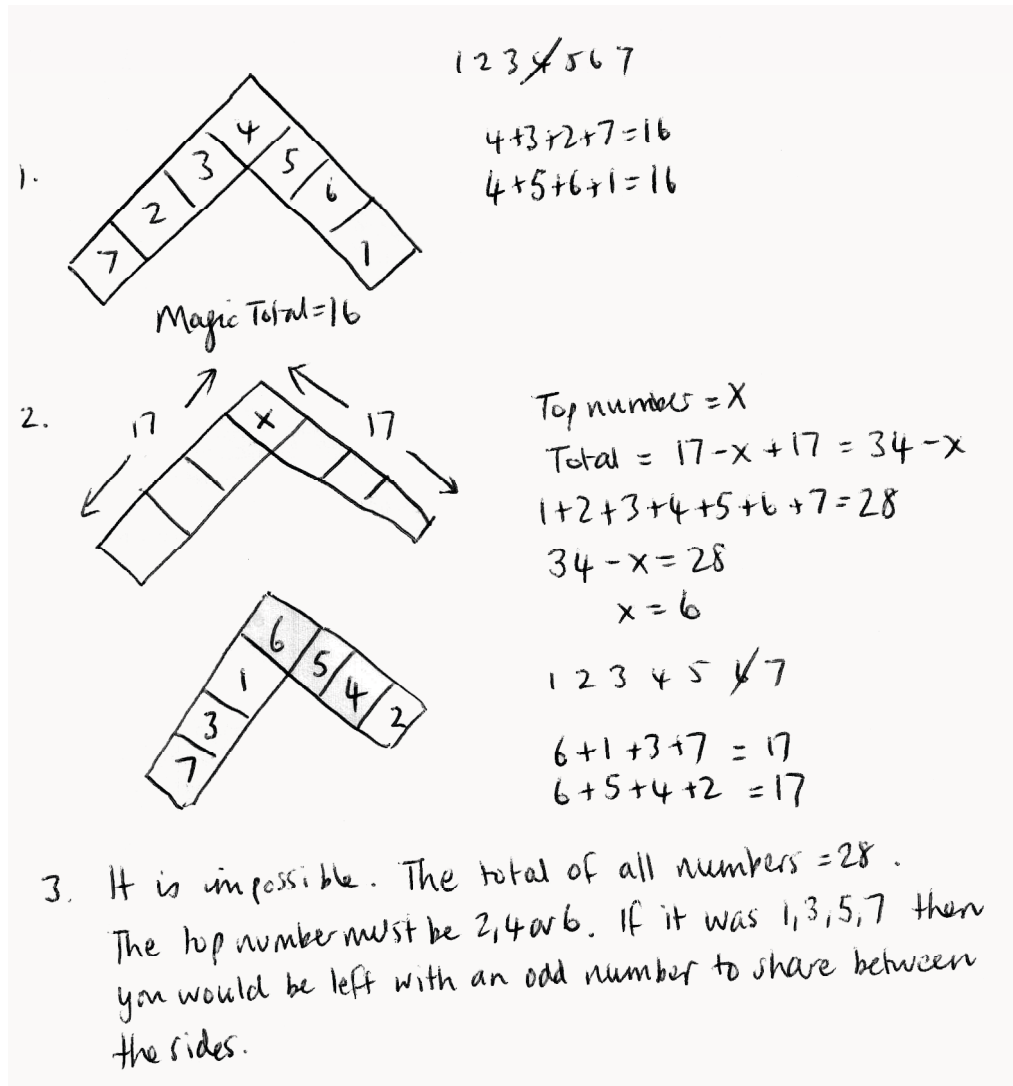 1 2 3 4 5 6 7
4+3+2+7=16
4+5+6+1=16
1.
4
3 5
2 6
7 1
Magic Total=16
2.
17 X 17
Top number = X
Total = 17-x+17 = 34-x
1+2+3+4+5+6+7=28
34-x=28
x=6
6
1 5
3 4
7 2
1 2 3 4 5 6 7
6+1+3+7 = 17
6+5+4+2 = 17
3. It is impossible. The total of all numbers =28.
The top number must be 2,4 or 6. If it was 1,3,5,7 then
you would be left with an odd number to share between
the sides.